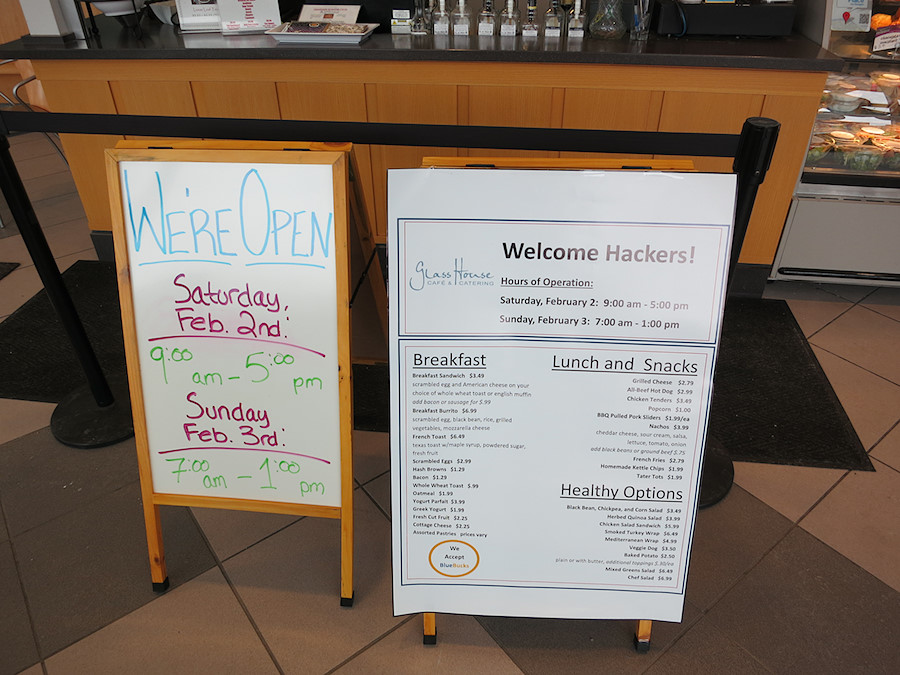 We're Open
Saturday,
Feb. 2nd:
9:00 am - 5:00 pm
Sunday
Feb. 3rd:
7:00 am - 1:00 pm
Glass House
CAFÉ & CATERING
Welcome Hackers!
Hours of Operation:
Saturday, February 2: 9:00 am - 5:00 pm
Sunday, February 3: 7:00 am - 1:00 pm
Breakfast
Breakfast Sandwich $3.49
scrambled egg and American cheese on your
choice of whole wheat toast or english muffin
add bacon or sausage for $.99
Breakfast Burrito $6.99
scrambled egg, black bean, rice, grilled
vegetables, mozzarella cheese
French Toast $6.49
texas toast w/maple syrup, powdered sugar,
fresh fruit
Scrambled Eggs $2.99
Hash Browns $1.29
Bacon $1.29
Whole Wheat Toast $.99
Oatmeal $1.99
Yogurt Parfait $3.99
Greek Yogurt $1.99
Fresh Cut Fruit $2.25
Cottage Cheese $2.25
Assorted Pastries prices vary
We
Accept
BlueBucks
Lunch and Snacks
Grilled Cheese $2.79
All-Beef Hot Dog $2.99
Chicken Tenders $3.49
Popcorn $1.00
BBQ Pulled Pork Sliders $1.99/ea
Nachos $3.99
cheddar cheese, sour cream, salsa,
lettuce, tomato, onion
add black beans or ground beef $.75
French Fries $2.79
Homemade Kettle Chips $1.99
Tater Tots $1.99
Healthy Options
Black Bean, Chickpea, and Corn Salad $3.49
Herbed Quinoa Salad $3.99
Chicken Salad Sandwich $5.99
Smoked Turkey Wrap $6.49
Mediterranean Wrap $4.99
Veggie Dog $3.50
Baked Potato $2.50
plain or with butter, additional toppings $.30/ea
Mixed Greens Salad $6.49
Chef Salad $6.99